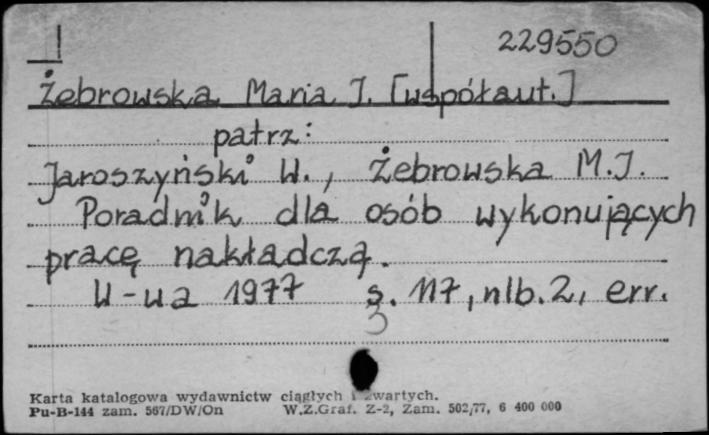 229550
Żebrowska Maria J. [współaut.]
patrz:
Jaroszyński W., Żebrowska M.J.
Poradnik dla osób wykonujących
pracę nakładczą.
W-wa 1977 s. 117, nlb. 2, err.
3
Karta katalogowa wydawnictw ciągłych i zwartych.
Pu-B-144 zam. 567/DW/On W.Z.Graf. Z-2, Zam. 502/77, 6 400 000